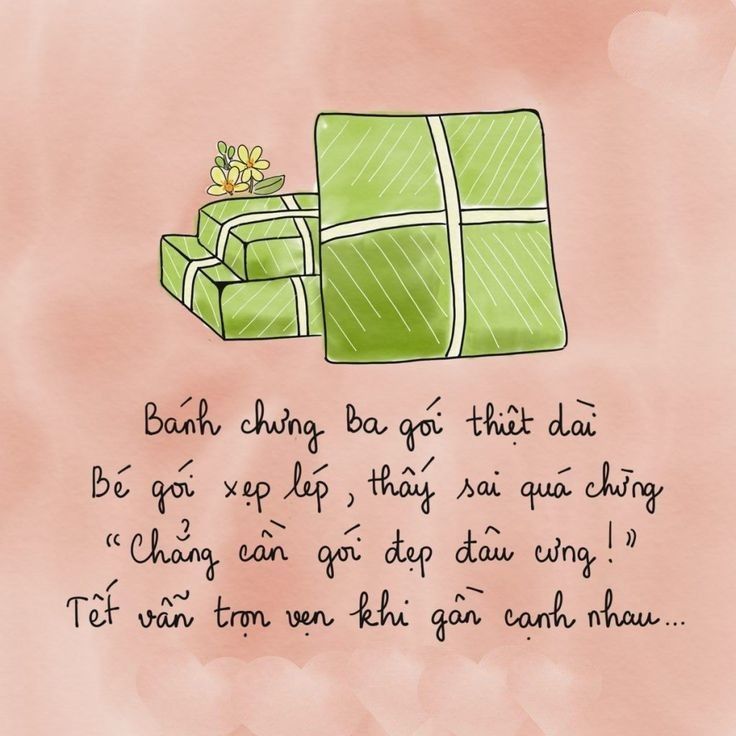 Bánh chưng Ba gói thiệt dài
Bé gói xẹp lép, thấy sai quá chừng
“Chẳng cần gói đẹp đâu cưng!”
Tết vẫn trọn vẹn khi gần cạnh nhau...